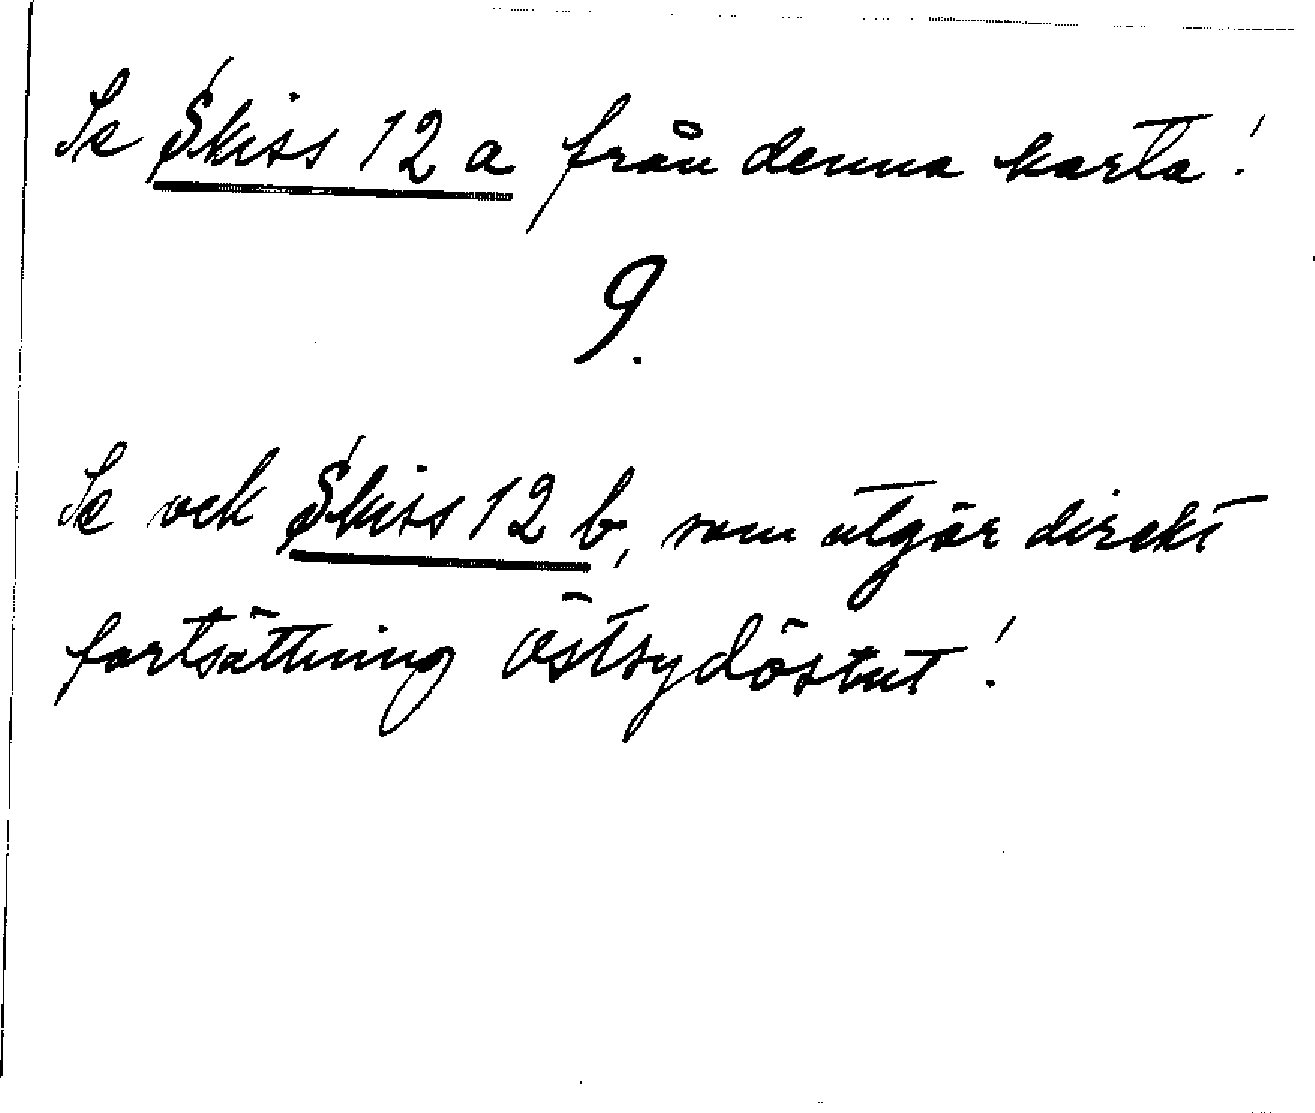 Se Skiss 12 a från denna karta!
9.
Se ock Skiss 12 b, som utgör direkt
fortsättning östsydöstut!